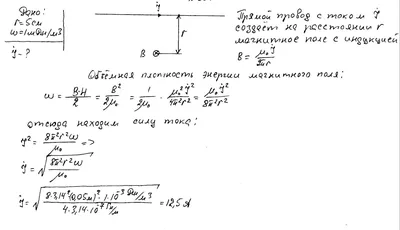 Дано:
r=5см
w=1мДж/м3
J-?
J
r
B
Прямой провод с током J
создаёт на расстоянии r
магнитное поле с индукцией
B = μ₀J/2πr
Объёмная плотность энергии магнитного поля:
w = B·H/2 = B²/2μ₀ = 1/2μ₀ · μ₀²J²/4π²r² = μ₀J²/8π²r²
отсюда находим силу тока:
J² = 8π²r²w/μ₀ =>
J = √(8π²r²w/μ₀)
J = √(8·3,14²·(0,05м)²·1·10⁻³ Дж/м3 / 4·3,14·10⁻⁷ Гн/м) = 12,5 А